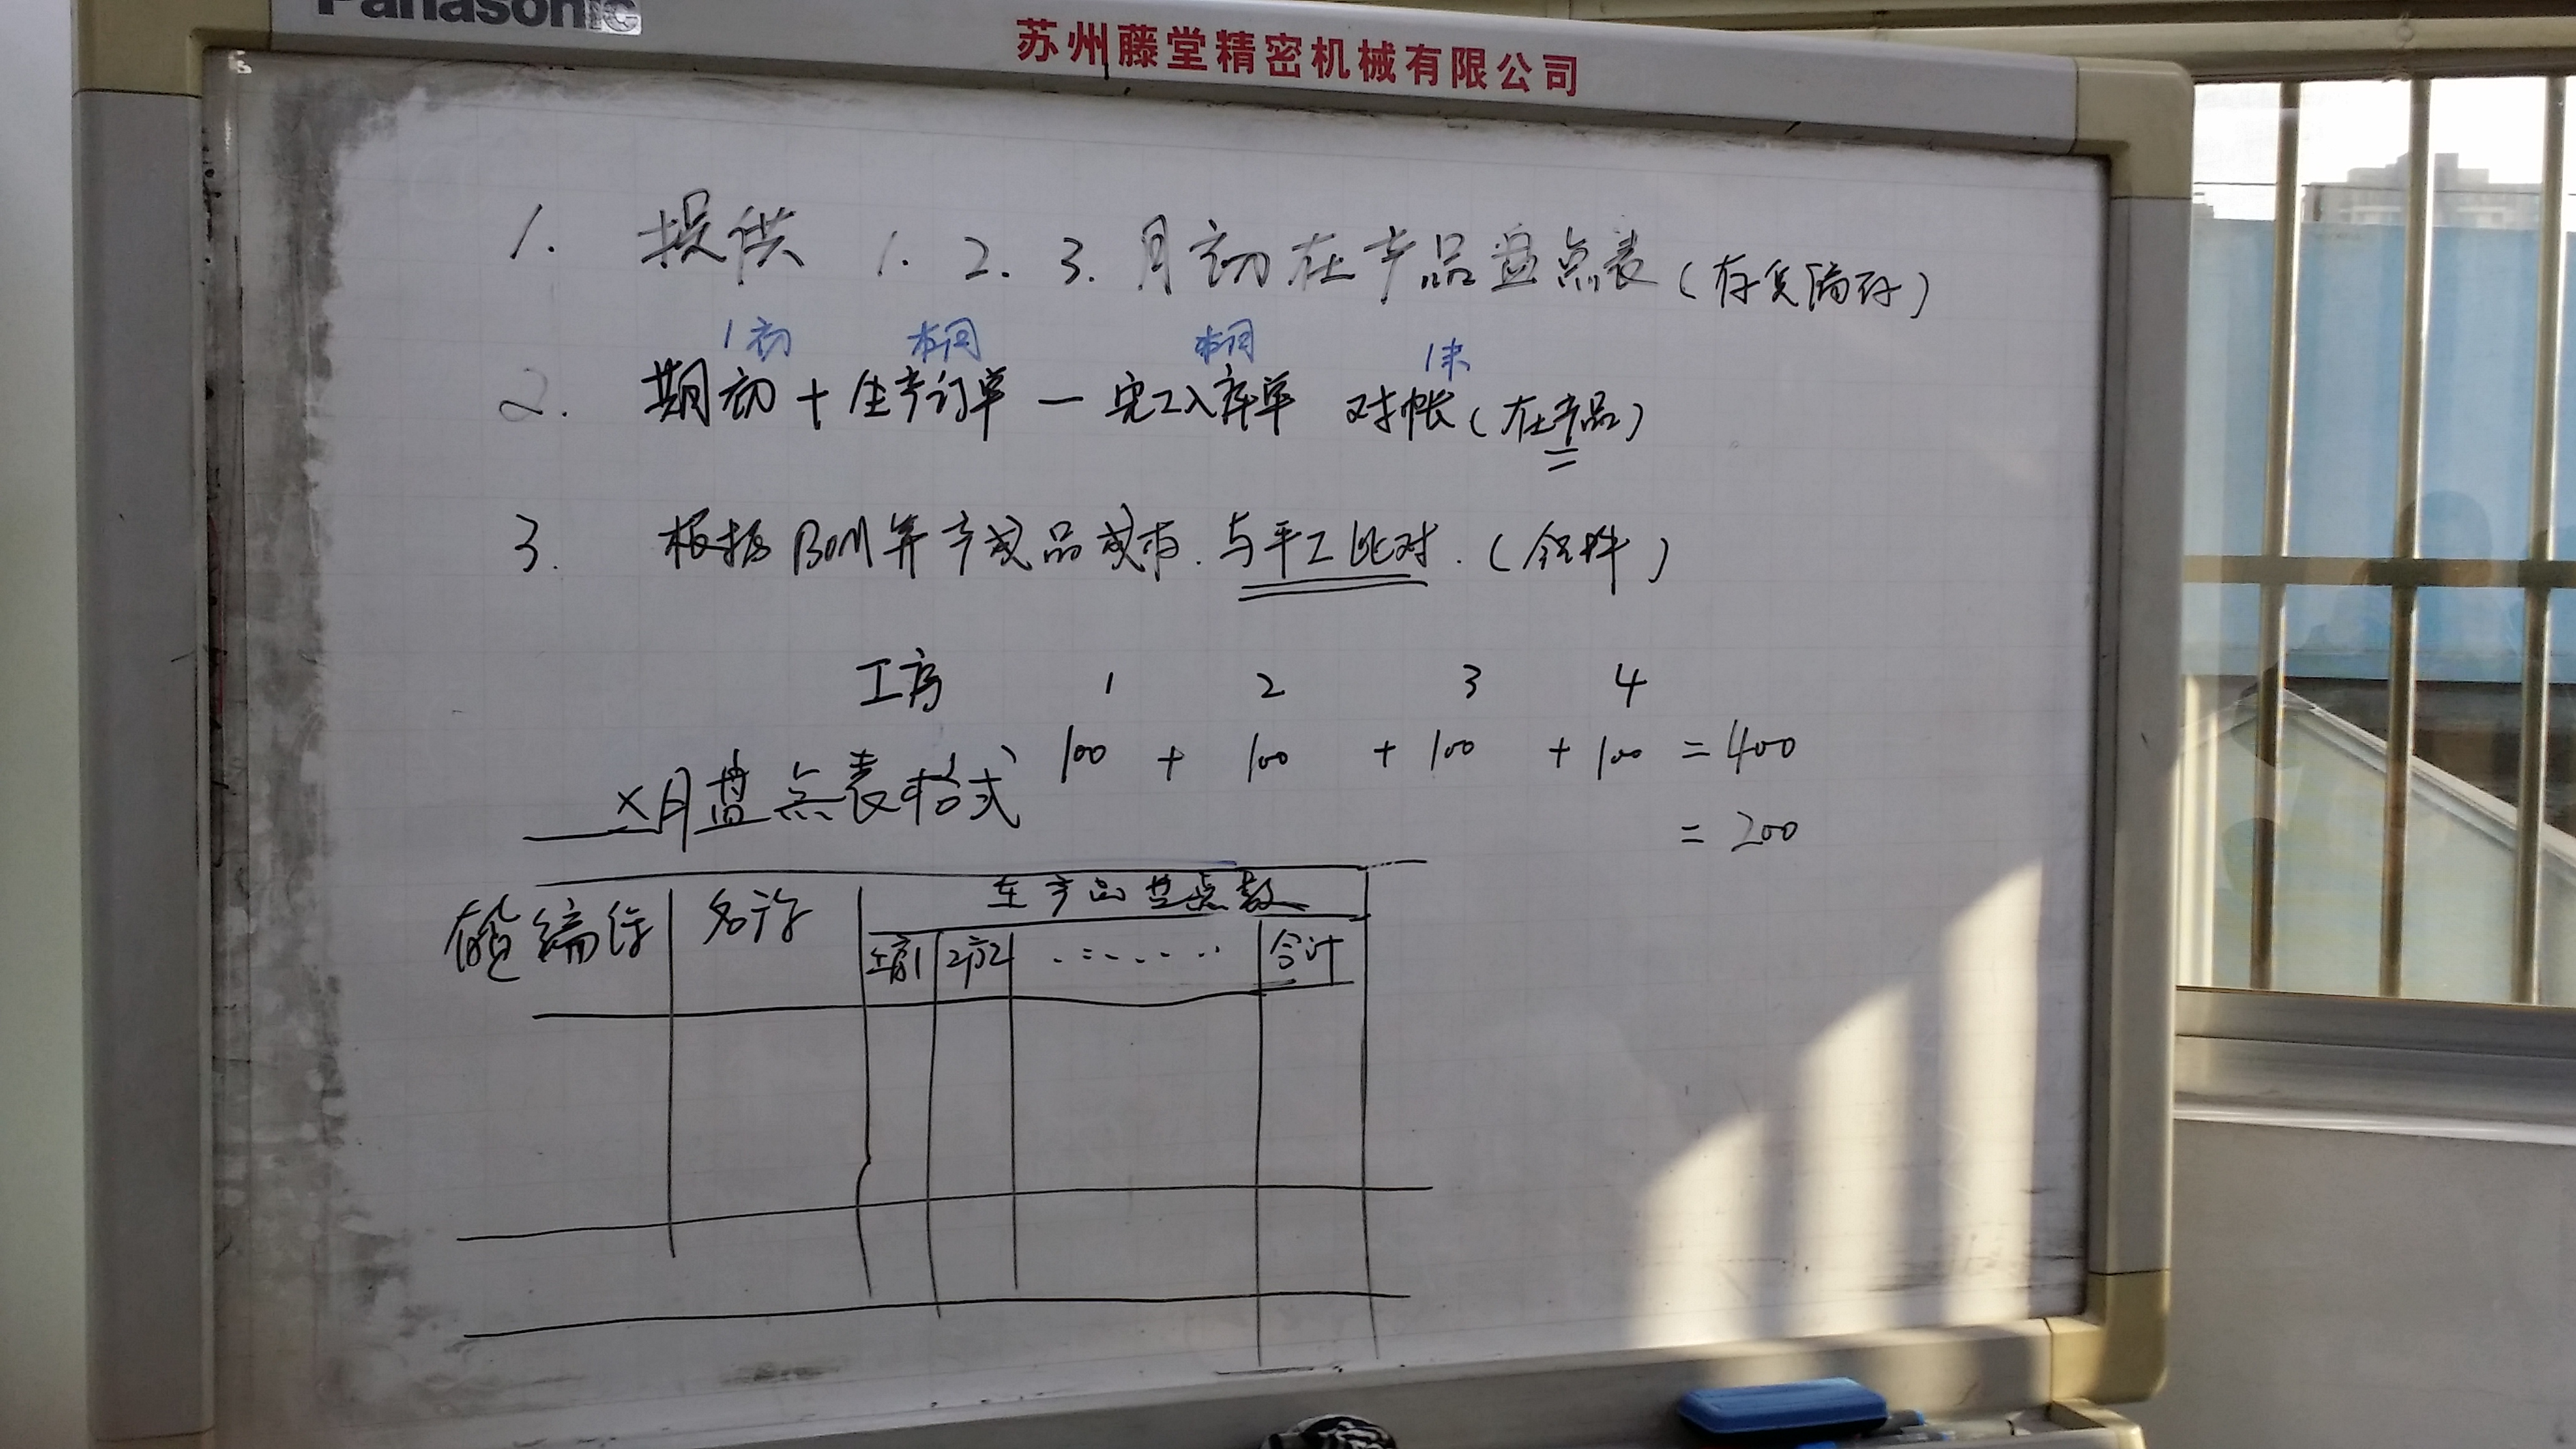 Panasonic
苏州藤堂精密机械有限公司
1. 提供 1. 2. 3. 月初在产品盘点表(存货编码)
1初 本月 本月 1末
2. 期初 + 生产订单 — 完工入库单 对帐(在产品)
3. 根据BOM算产成品成本. 与手工比对. (全部)
工序 1 2 3 4
100 + 100 + 100 + 100 = 400
X月盘点表格式
= 200
存货编码 名称 在产品盘点数
工序1 工序2 ······· 合计